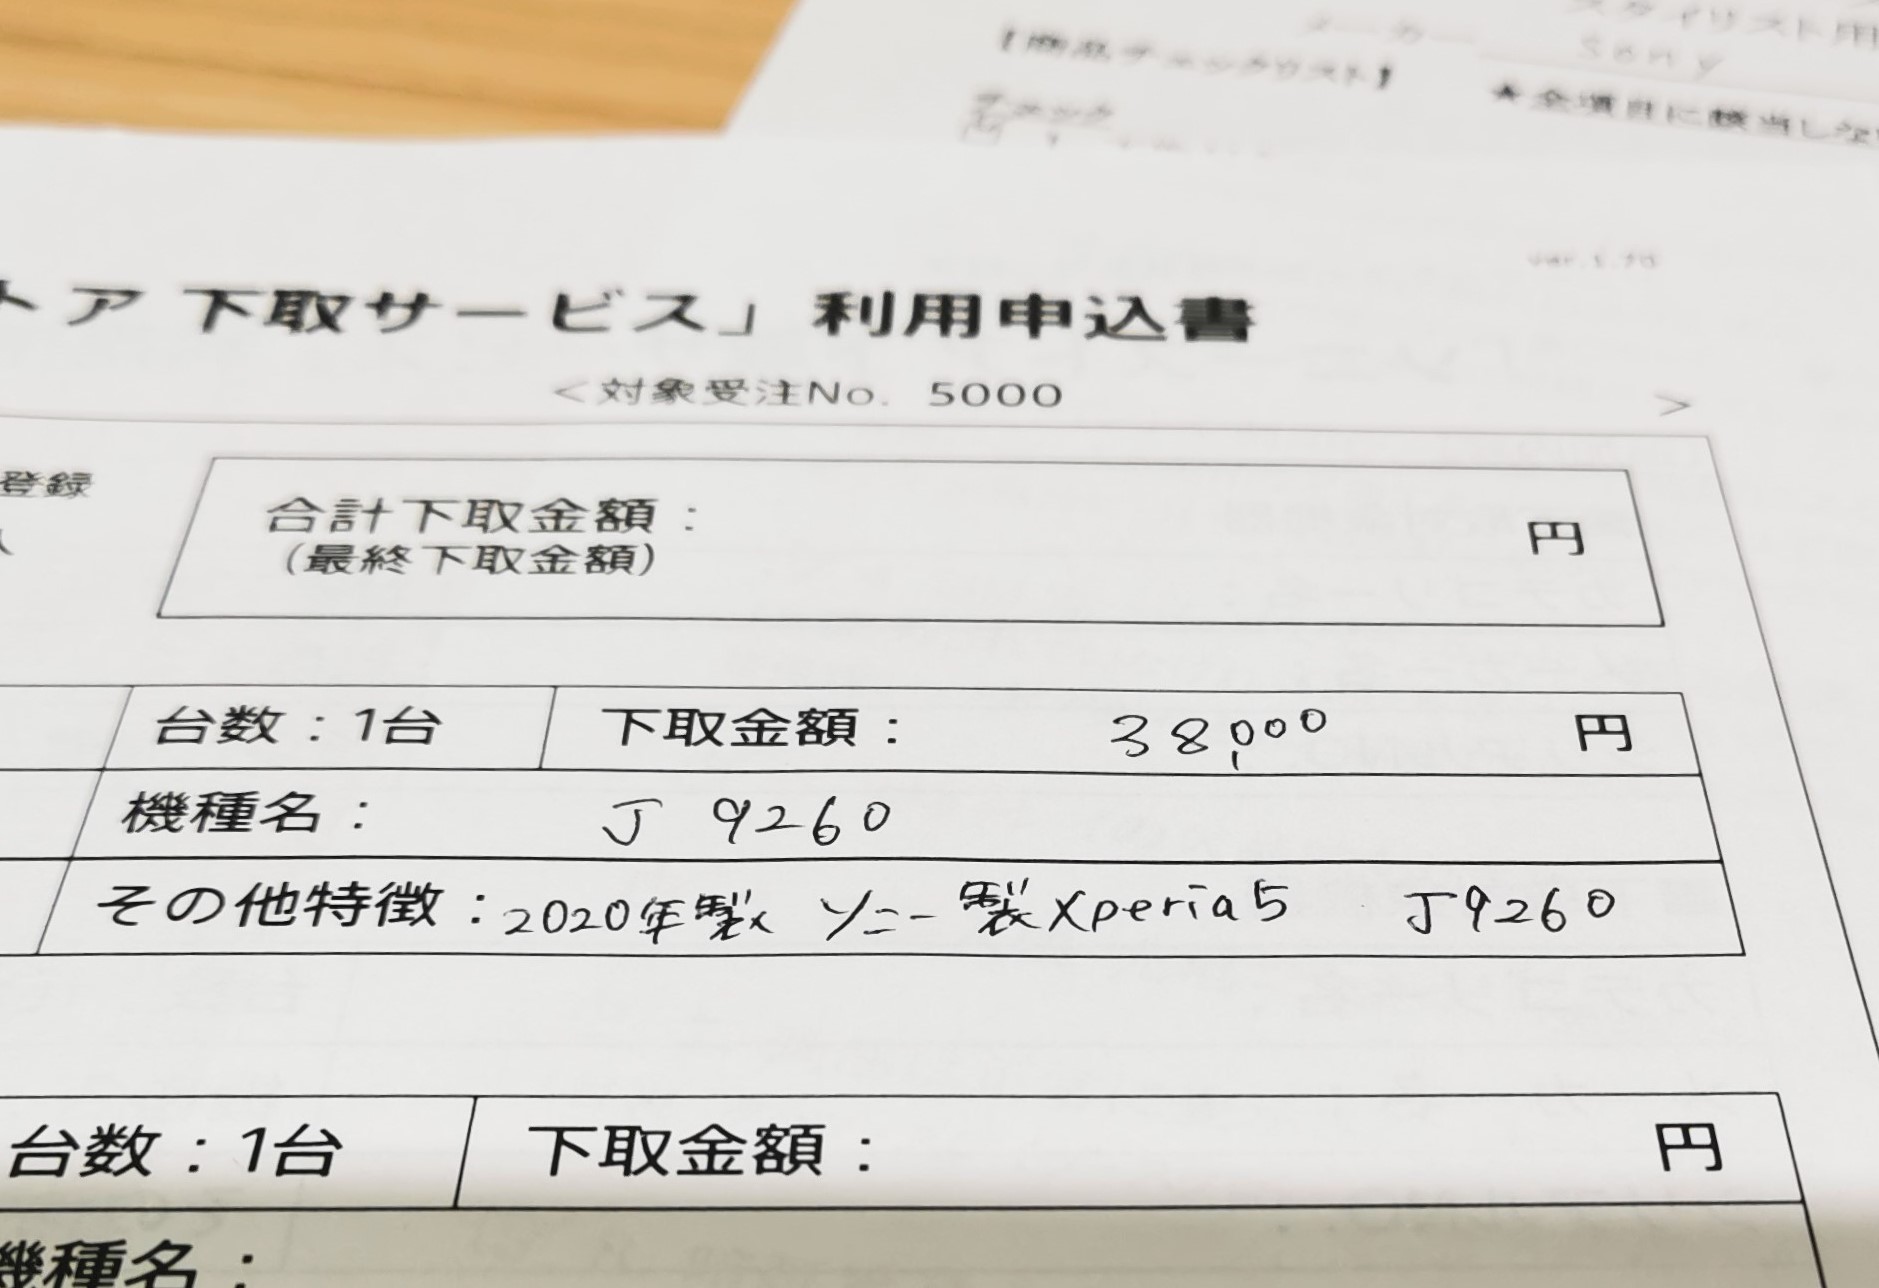 メーカー Sony
スタイリスト用
【商品チェックリスト】 ★全項目に該当しな
チェック
トア 下取サービス」利用申込書
<対象受注No. 5000 >
登録
合計下取金額： 円
(最終下取金額)
台数：1台 下取金額： 38,000 円
機種名： J 9260
その他特徴：2020年製 ソニー製Xperia5 J9260
台数：1台 下取金額： 円
機種名：